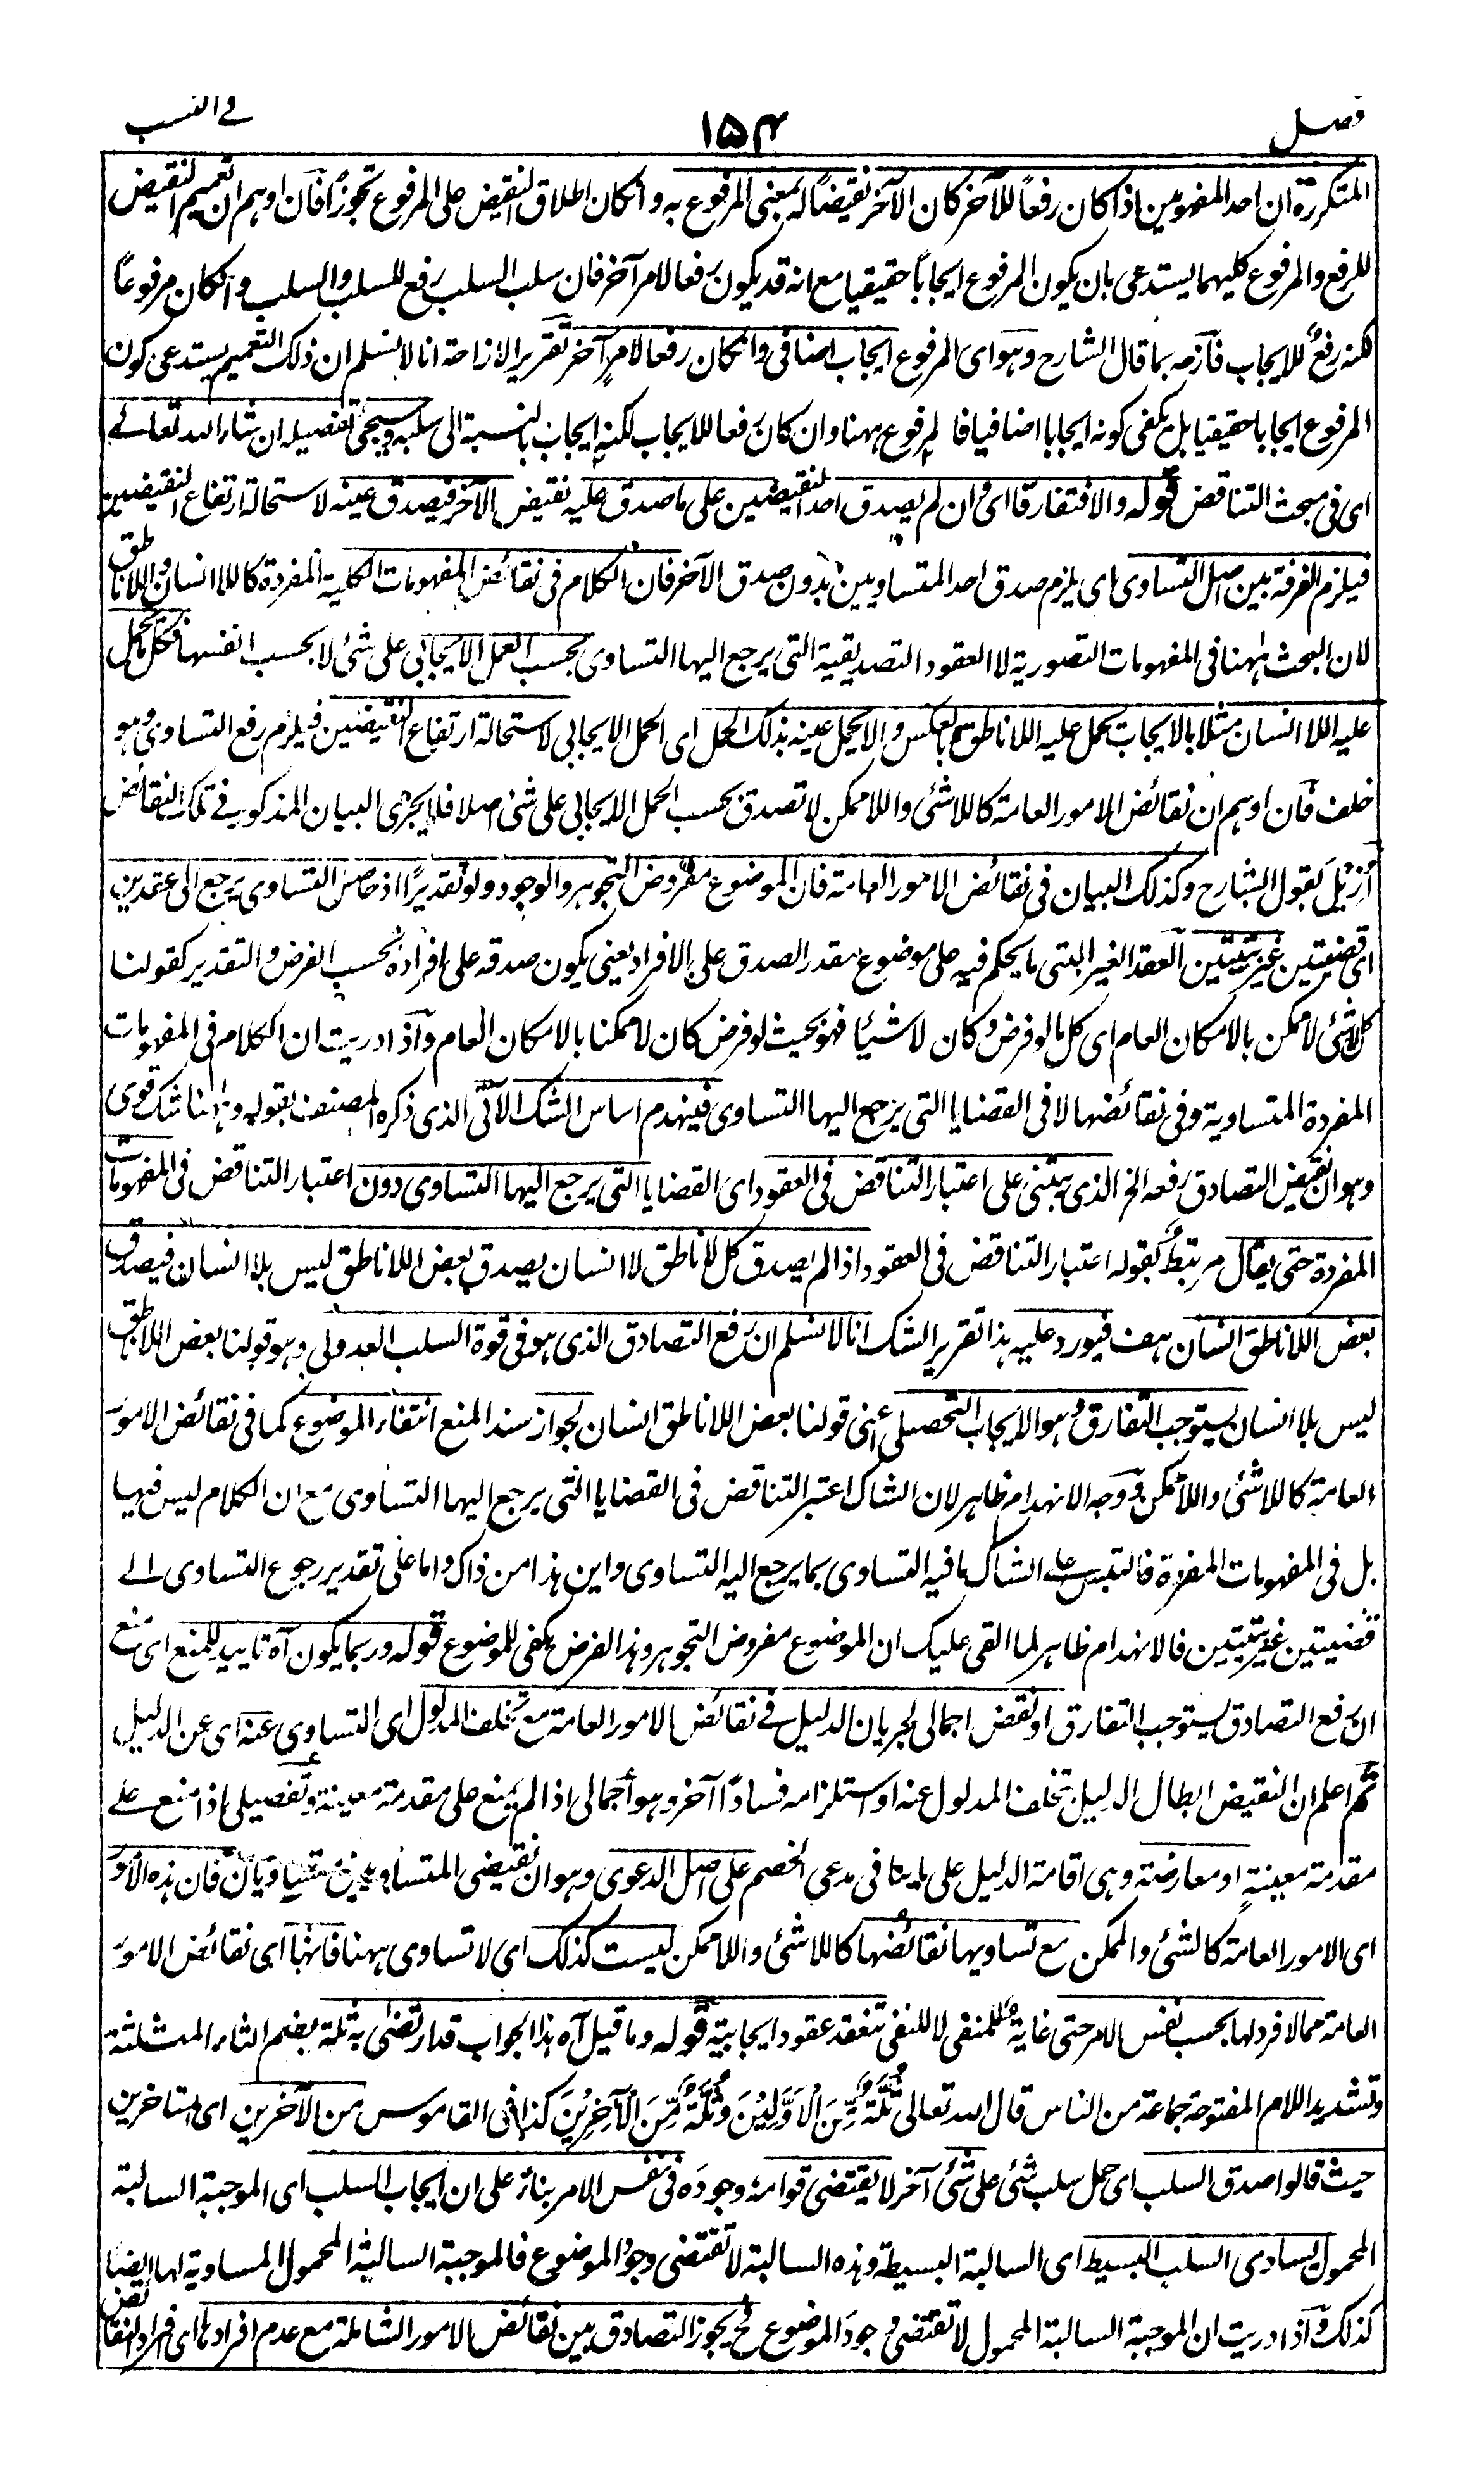 فصل ١٥٤ في النسب
المتكررة ان احد المفهومين اذا كان رفعاً للآخر كان الآخر نقيضاً له بمعنى المرفوع به وانكان اطلاق النقيض على المرفوع تجوزاً فآن اوهم ان تعميم النقيض
للرفع والمرفوع كليهما يستدعى بان يكون المرفوع ايجاباً حقيقيا مع انه قد يكون رفعا لامر آخر فان سلب السلب رفع للسلب والسلب وانكان مرفوعاً
لكنه رفعٌ للايجاب فآزمه بما قال الشارح وهو اى المرفوع ايجاب اضافى وانكان رفعا لامرٍ آخر تقرير الازاحة انا لا نسلم ان ذلك التعميم يستدعى كون
المرفوع ايجابا حقيقيا بل يكفى كونه ايجابا اضافيا فالمرفوع ههنا وان كان رفعا للايجاب لكنه ايجاب بالنسبة الى سلبه وسيجئ تفصيله ان شاء الله تعالے
اى فى مبحث التناقض قوله والا فتفارقا اى وان لم يصدق احد النقيضين على ما صدق عليه نقيض الآخر فيصدق عينه لاستحالة ارتفاع النقيضين
فيلزم الفرقة بين اصل التساوى اى يلزم صدق احد المتساويين بدون صدق الآخر فان الكلام فى نقائض المفهومات الكلية المفردة كاللاانسان واللاناطق
لان البحث ههنا فى المفهومات التصورية لا العقود التصديقية التى يرجع اليها التساوى بحسب الحمل الايجابى على شئ لا بحسب انفسها فكل ما يحمل
عليه اللاانسان مثلا بالايجاب يحمل عليه اللاناطق بالعكس والا يحمل عينه بذلك الحمل اى الحمل الايجابى لاستحالة ارتفاع النقيضين فيلزم رفع التساوى وهو
خلف فآن اوهم ان نقائض الامور العامة كاللاشئ واللاممكن لا تصدق بحسب الحمل الايجابى على شئ اصلا فلا يجرى البيان المذكور فے تلك النقائض
اُزيل بقول الشارح وكذلك البيان فى نقائض الامور العامة فان الموضوع مفروض التجوهر والوجود ولو تقديرًا اذ حاصل التساوى يرجع الى عقدين
اى قضيتين غير بتيتين العقد الغير البتى ما يحكم فيه على موضوع مقدر الصدق على الافراد يعنى يكون صدقه على افراده بحسب الفرض والتقدير كقولنا
كل لاشئ لاممكن بالامكان العام اى كل ما لو فرض وكان لا شيئا فهو بحيث لو فرض كان لاممكنا بالامكان العام وآذا دريت ان الكلام فى المفهومات
المفردة المتساوية وفى نقائضها لا فى القضايا التى يرجع اليها التساوى فينهدم اساس الشك الآتى الذى ذكره المصنف بقوله وههنا شك قوى
وهو ان نقيض التصادق رفعه الخ الذى يبتنى على اعتبار التناقض فى العقود اى القضايا التى يرجع اليها التساوى دون اعتبار التناقض فى المفهومات
المفردة حتى يقال مرتبطٌ بقوله اعتبار التناقض فى العقود اذا لم يصدق كل لاناطق لاانسان يصدق بعض اللاناطق ليس بلاانسان فيصدق
بعض اللاناطق انسان هف فيورد عليه هذا تقرير الشك انا لا نسلم ان رفع التصادق الذى هو فى قوة السلب العدولى وهو قولنا بعض اللاناطق
ليس بلاانسان يستوجب التفارق وهو الايجاب التحصيلى اعنى قولنا بعض اللاناطق انسان لجواز سند المنع انتفاء الموضوع كما فى نقائض الامور
العامة كاللاشئ واللاممكن ووجه الانهدام ظاهر لان الشاك اعتبر التناقض فى القضايا التى يرجع اليها التساوى مع ان الكلام ليس فيها
بل فى المفهومات المفردة فالتبس على الشاك ما فيه التساوى بما يرجع اليه التساوى واين هذا من ذاك واما على تقدير رجوع التساوى الے
قضيتين غير بتيتين فالانهدام ظاهر لما القى عليك ان الموضوع مفروض التجوهر وهذا الفرض يكفى للموضوع قوله وربما يكون آه تاييد للمنع اى منع
ان رفع التصادق يستوجب التفارق او نقض اجمالى لجريان الدليل فے نقائض الامور العامة مع تخلف المدلول اى التساوى عنه اى عن الدليل
ثم اعلم ان النقيض ابطال الدليل بتخلف المدلول عنه او استلزامه فسادًا آخر وهو اجمالى اذا لم يمنع على مقدمة معينة وتفصيلى اذا منع علے
مقدمة معينةٍ او معارضة وهى اقامة الدليل على ما ينافى مدعى الخصم على اصل الدعوى وهو ان نقيضى المتساويين متساويان فان هذه الامور
اى الامور العامة كالشئ والممكن مع تساويها نقائضها كاللاشئ واللاممكن ليست كذلك اى لا تساوى ههنا فانها اى نقائض الامور
العامة مما لا فرد لها بحسب نفس الامر حتى غاية للمنفى لا للنفى تنعقد عقود ايجابية قوله وما قيل آه هذا الجواب قد ارتضى به ثلة بضم الثاء المثلثة
وتشديد اللام المفتوحة جماعة من الناس قال الله تعالى ثُلَّةٌ مِّنَ الْاَوَّلِيْنَ وَثُلَّةٌ مِّنَ الْآخِرِيْنَ كذا فى القاموس من الآخرين اى المتاخرين
حيث قالوا صدق السلب اى حمل سلب شئ على شئ آخر لا يقتضى قوامه وجوده فى نفس الامر بناءً على ان ايجاب السلب اى الموجبة السالبة
المحمول يساوى السلب البسيط اى السالبة البسيطة وهذه السالبة لا تقتضى وجود الموضوع فالموجبة السالبة المحمول المساوية لها ايضا
كذلك وآذا دريت ان الموجبة السالبة المحمول لا تقتضى وجود الموضوع فح يجوز التصادق بين نقائض الامور الشاملة مع عدم افرادها اى افراد النقائض